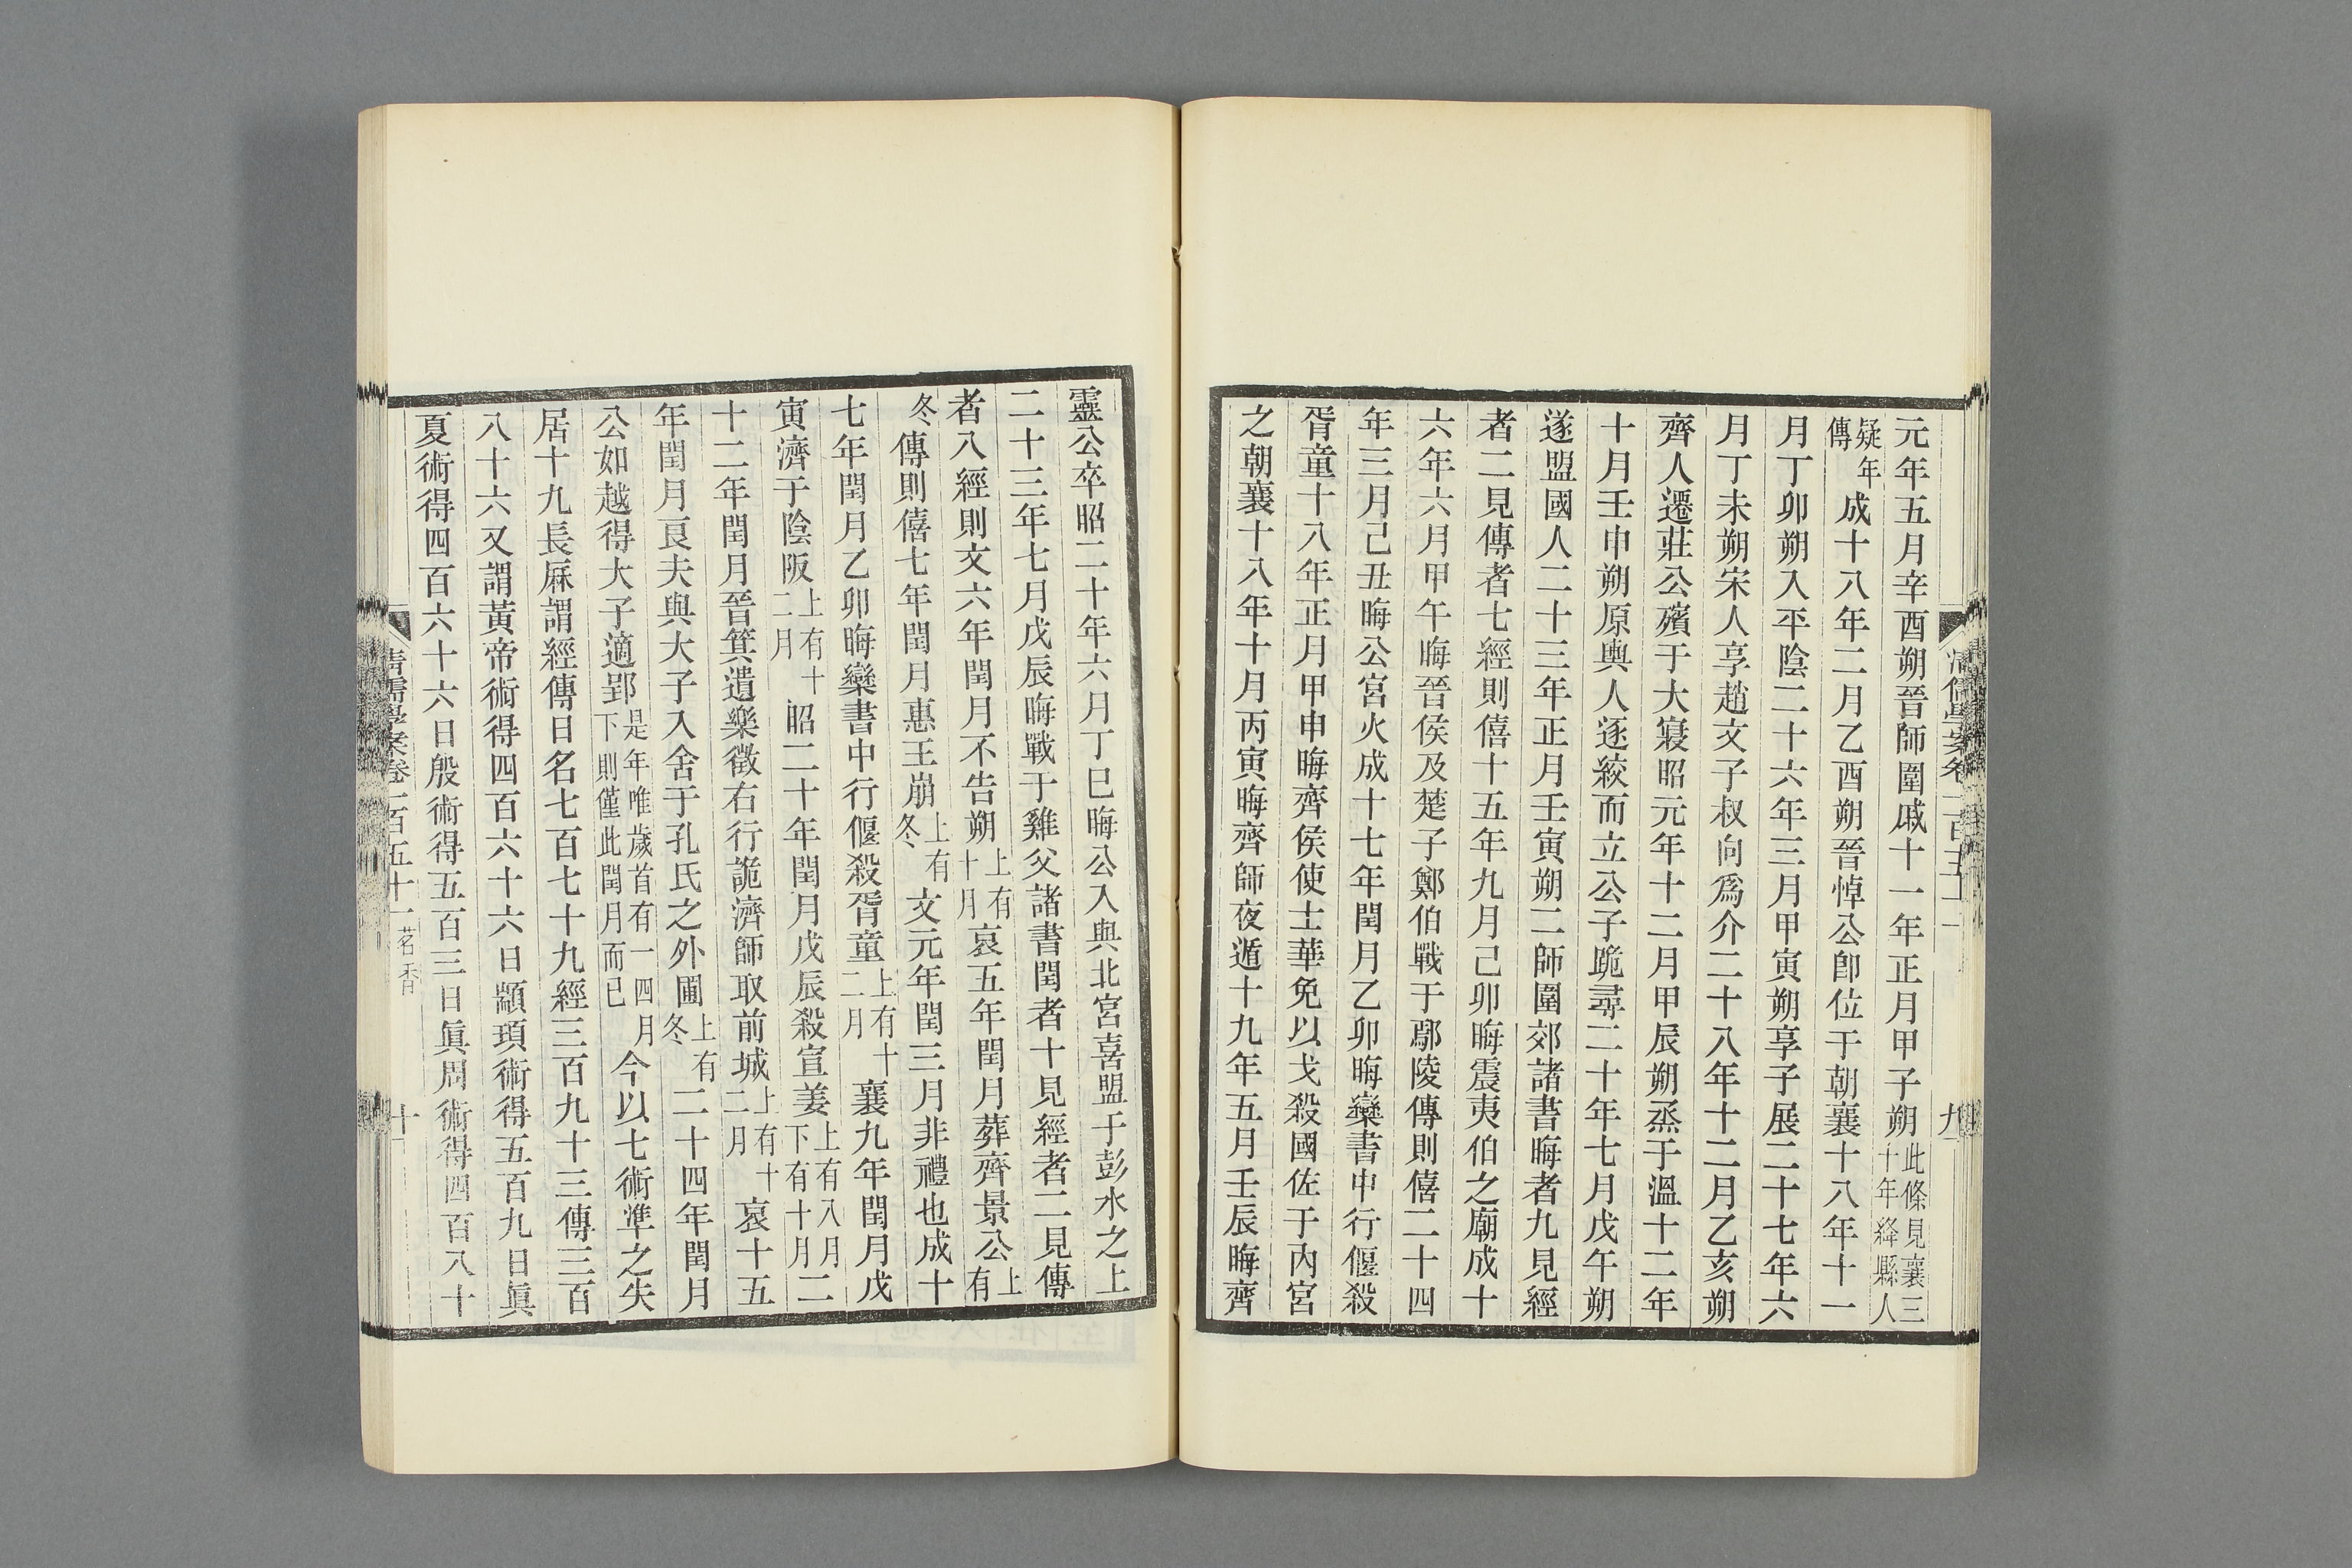 元年五月辛酉朔晉師圍戚十一年正月甲子朔此條見襄三十年絳縣人
疑年傳成十八年二月乙酉朔晉悼公卽位于朝襄十八年十一
月丁卯朔入平陰二十六年三月甲寅朔享子展二十七年六
月丁未朔宋人享趙文子叔向爲介二十八年十二月乙亥朔
齊人遷莊公殯于大寢昭元年十二月甲辰朔烝于溫十二年
十月壬申朔原輿人逐絞而立公子跪尋二十年七月戊午朔
遂盟國人二十三年正月壬寅朔二師圍郊諸書晦者九見經
者二見傳者七經則僖十五年九月己卯晦震夷伯之廟成十
六年六月甲午晦晉侯及楚子鄭伯戰于鄢陵傳則僖二十四
年三月己丑晦公宮火成十七年閏月乙卯晦欒書中行偃殺
胥童十八年正月甲申晦齊侯使士華免以戈殺國佐于內宮
之朝襄十八年十月丙寅晦齊師夜遁十九年五月壬辰晦齊
清儒學案卷一百五十一
九
靈公卒昭二十年六月丁巳晦公入與北宮喜盟于彭水之上
二十三年七月戊辰晦戰于雞父諸書閏者十見經者二見傳
者八經則文六年閏月不告朔上有十月哀五年閏月葬齊景公上有
冬傳則僖七年閏月惠王崩上有冬文元年閏三月非禮也成十
七年閏月乙卯晦欒書中行偃殺胥童上有十二月襄九年閏月戊
寅濟于陰阪上有十二月昭二十年閏月戊辰殺宣姜上有八月下有十月二
十二年閏月晉箕遺樂徵右行詭濟師取前城上有十二月哀十五
年閏月良夫與大子入舍于孔氏之外圃上有冬二十四年閏月
公如越得大子適郢是年唯歲首有一四月下則僅此閏月而已今以七術準之失
居十九長厤謂經傳日名七百七十九經三百九十三傳三百
八十六又謂黃帝術得四百六十六日顓頊術得五百九日眞
夏術得四百六十六日殷術得五百三日眞周術得四百八十
清儒學案卷一百五十一茗香
十